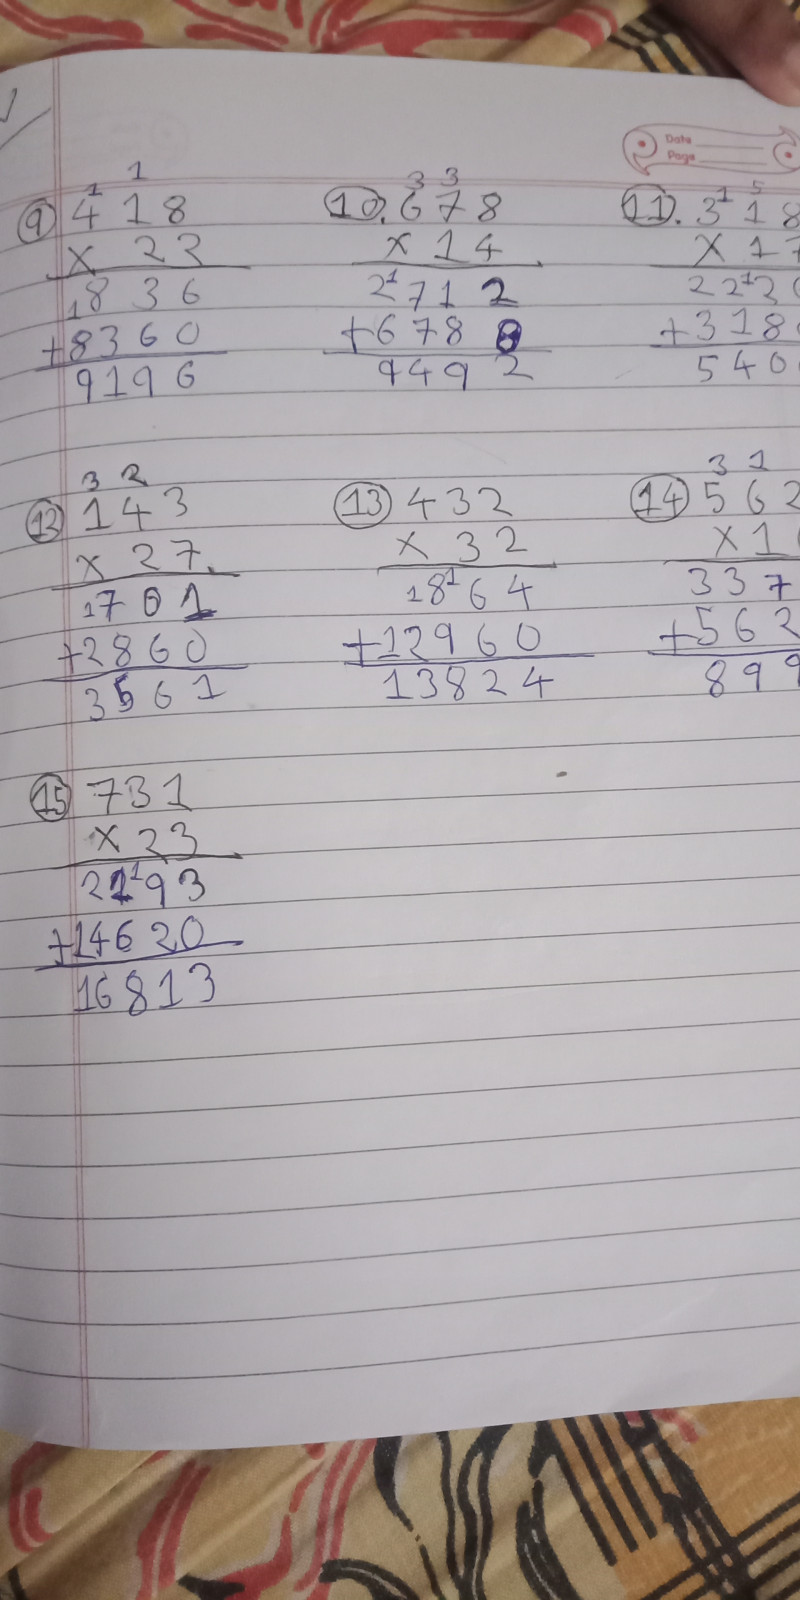 Date
Page
1 1
9 418
× 22
1836
+8360
9196
3 3
10. 678
× 14
2¹712
+6780
9492
1 5
11. 318
× 17
22¹2
+318
540
3 2
12 143
× 27.
1701
+2860
3561
13 432
× 32
18¹64
+12960
13824
3 1
14 562
× 1
337
+562
899
15 731
× 23
21¹93
+14620
16813